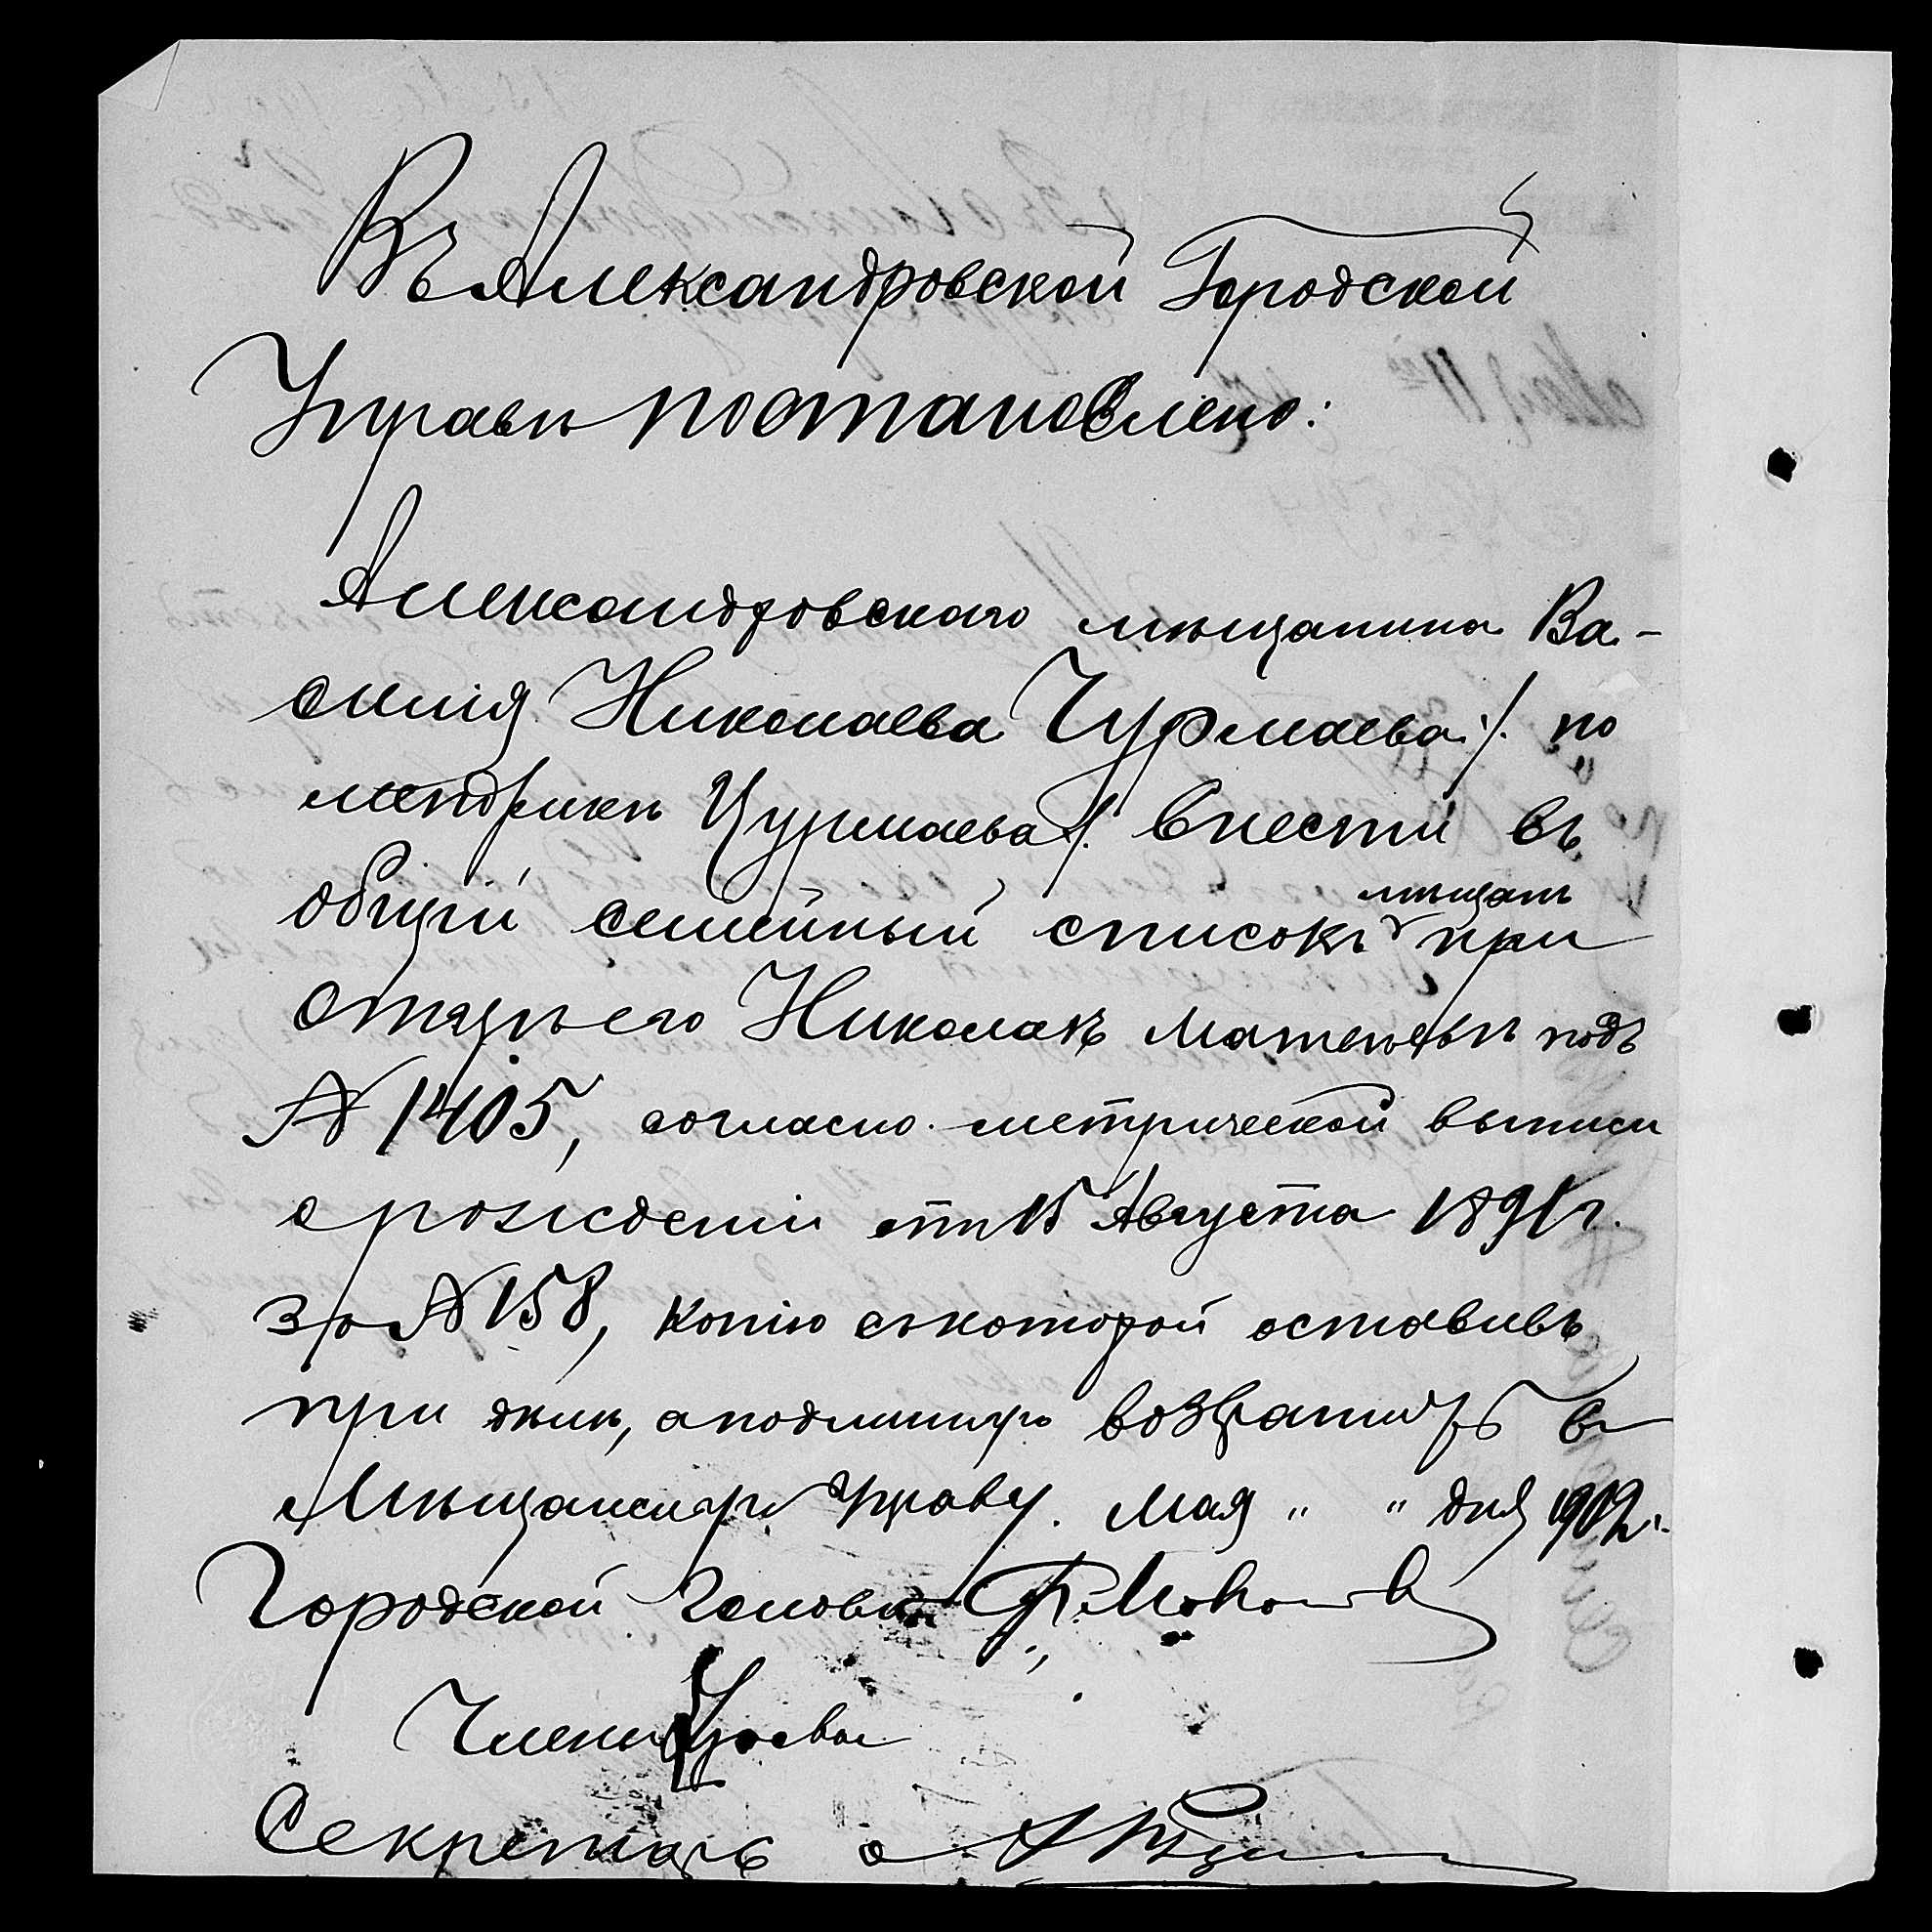 Въ Александровской Городской
Управѣ постановлено:
Александровскаго мѣщанина Ва-
силія Николаева Чурмаева /. по
метрикѣ Цурмаева /. внести въ
общій семейный списокъ мѣщанъ при
отцѣ его Николаѣ Матвѣевѣ подъ
№ 1405, согласно метрической выписи
о рожденіи отъ 15 Августа 1891 г.
за № 158, копію съ которой оставивъ
при дѣлѣ, а подлинную возвратить въ
Мѣщанскую Управу. Мая " " дня 1902 г.
Городской Голова
Члены Управы
Секретарь